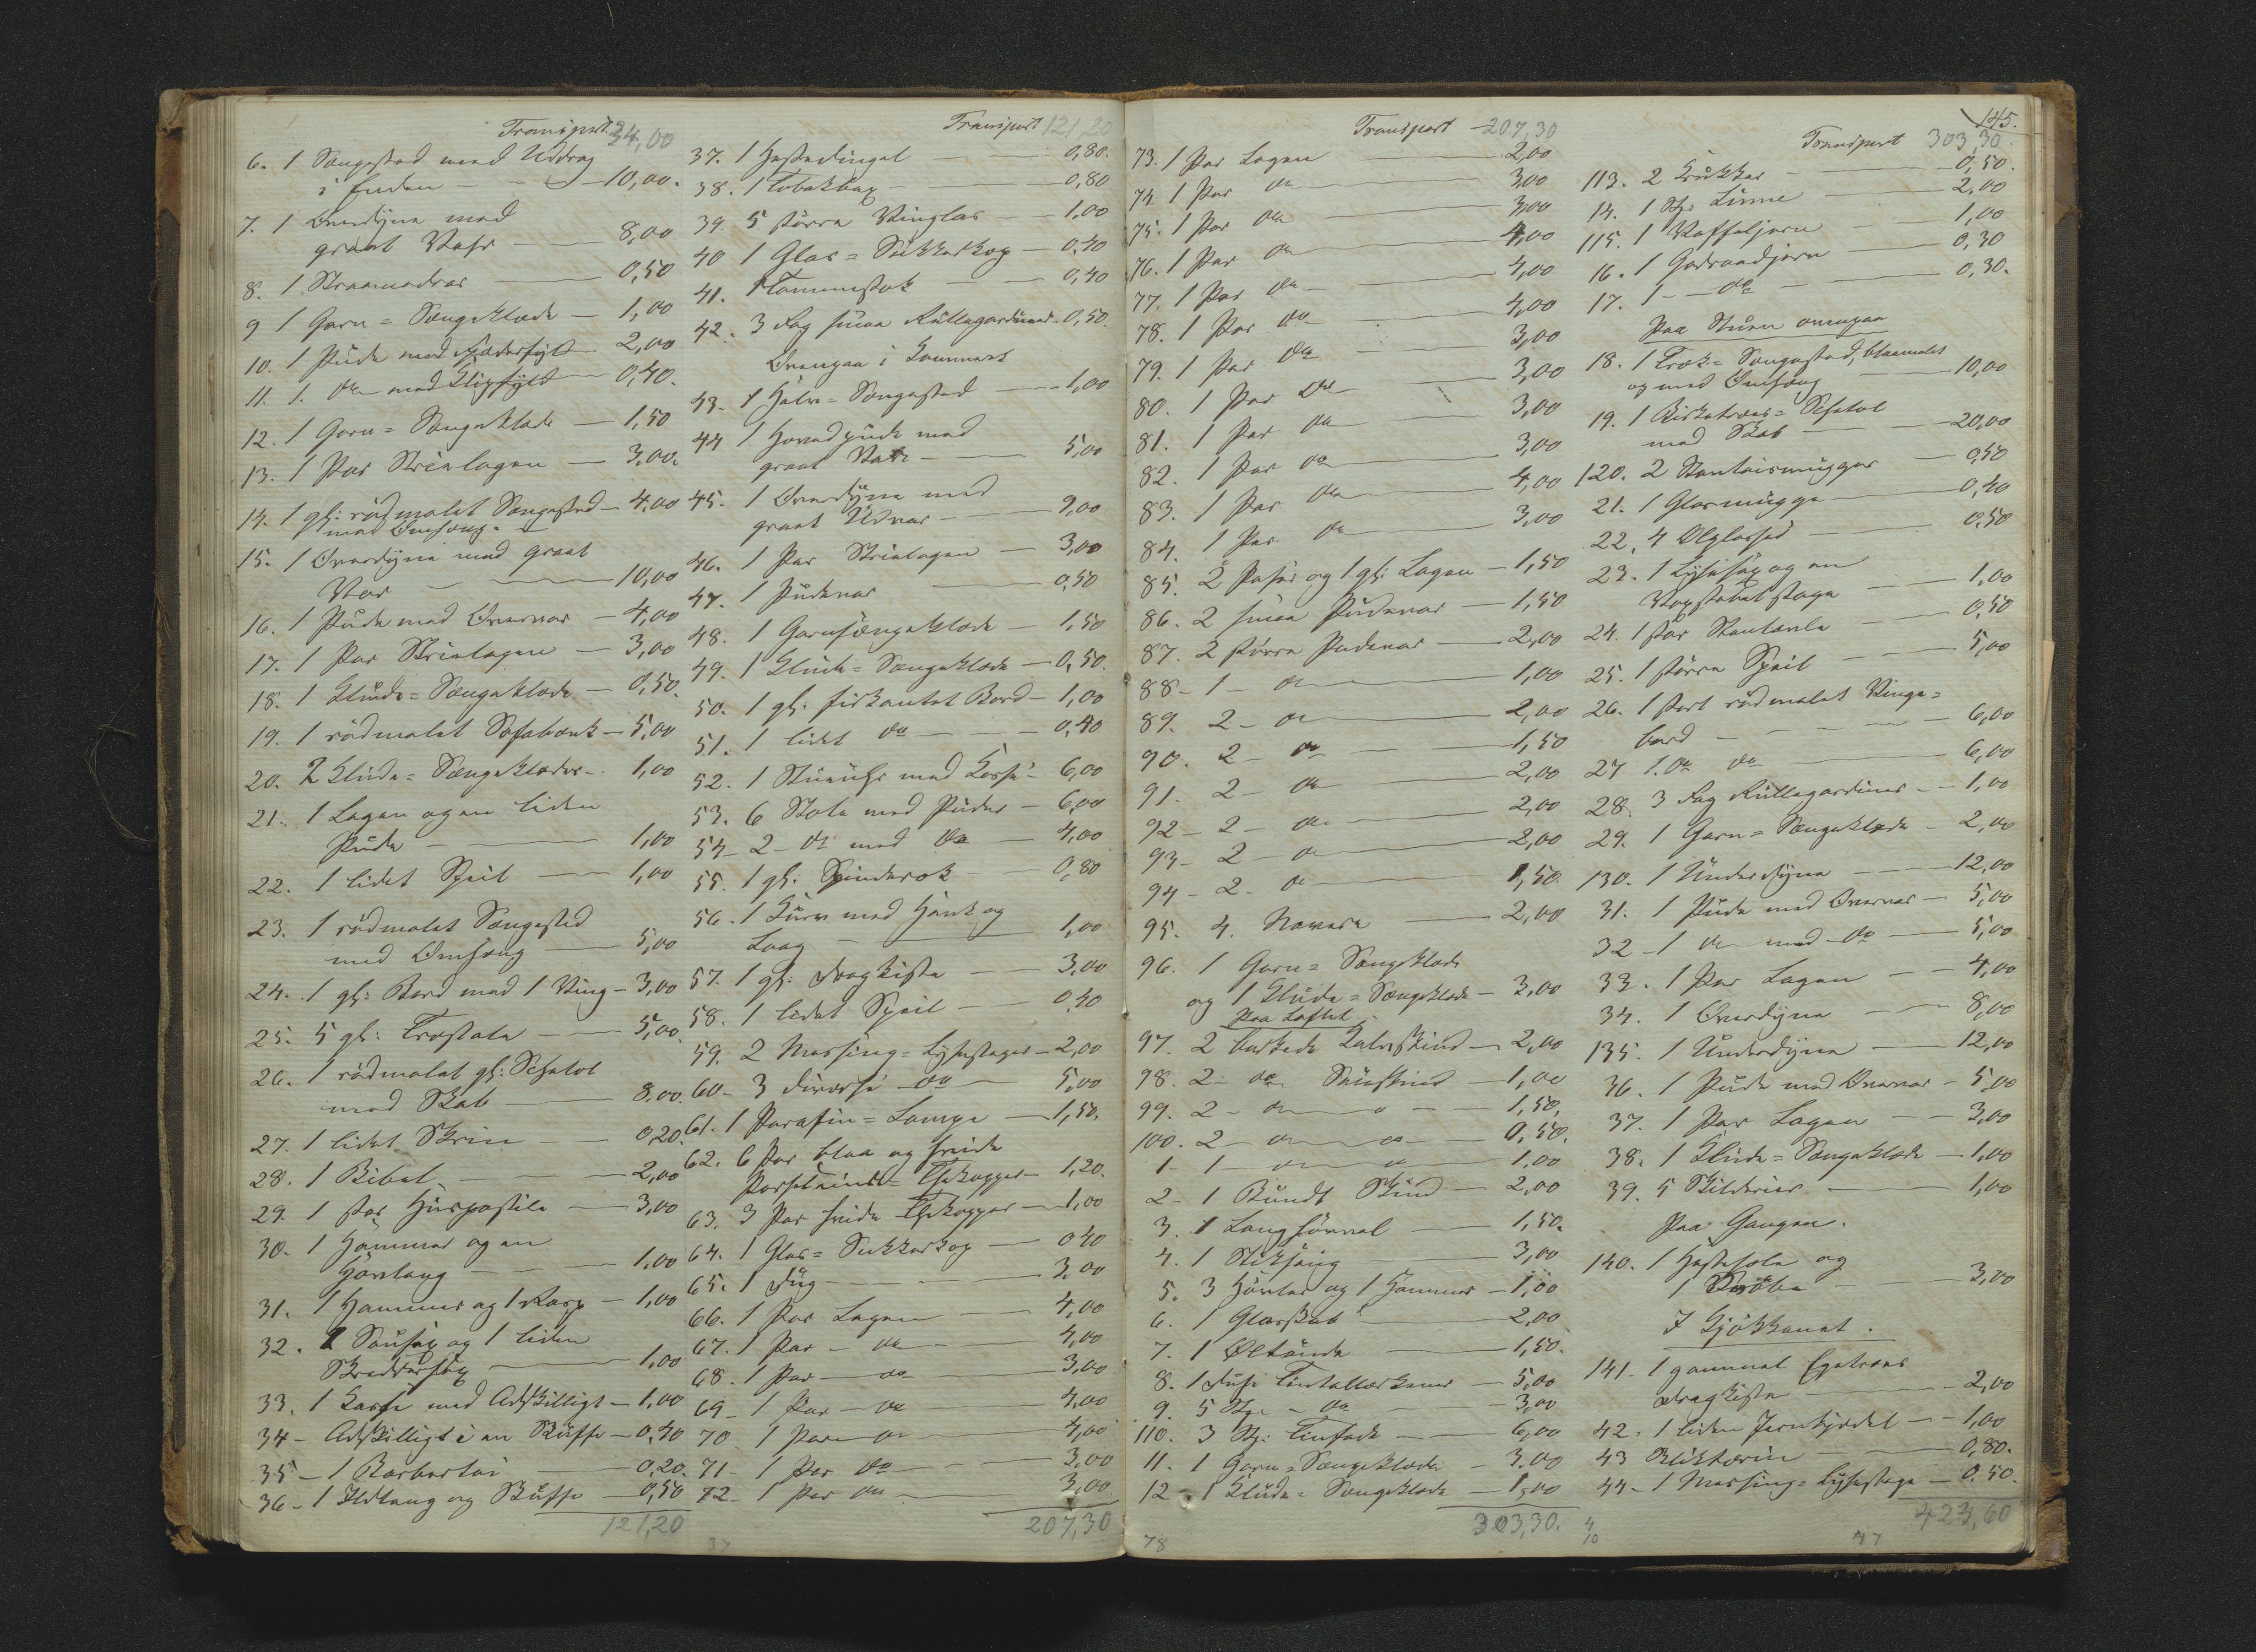 Transport 34,00
6. 1 Sengested med Uddrag
i Enden - 10,00.
7. 1 Overdyne med
graat Vahr - 8,00
8. 1 Straamadras 0,50
9 1 Garn = Sengeklæde - 1,00
10. 1 Pude med Fjæderfyld 2,00
11. 1. do med Klipfyld 0,40.
12. 1 Garn = Sengeklæde - 1,50
13. 1 Par Strielagen - 3,00.
14. 1 gl: rødmalet Sengested - 4,00
med Omheng.
15. 1 Overdyne med graat
Var - 10,00
16. 1 Pude med Overvar - 4,00
17. 1 Par Strielagen - 3,00
18. 1 Klude = Sengeklæde - 0,50.
19. 1 rødmalet Sofabænk - 5,00
20. 2 Klude = Sengeklæder - 1,00
21. 1 Lagen og en liden
Pude - 1,00
22. 1 lidet Speil - 1,00
23. 1 rødmalet Sengested
med Omheng - 5,00
24. 1 gl: Bord med 1 Ving - 3,00
25. 5 gl: Træstole - 5,00.
26. 1 rødmalet gl: Schatol
med Skab - 8,00.
27. 1 lidet Skrin - 0,20.
28. 1 Bibel - 2,00
29. 1 stor Huspostile - 3,00
30. 1 Hammer og en
Hovtang - 1,00
31. 1 Hammer og 1 Rasp - 1,00
32. 1 Sausax og 1 liden
Skreddersax 1,00
33. 1 Kasse med Adskilligt - 1,00
34 - Adskilligt i en Skuffe - 0,40
35 - 1 Barbertøi 0,20.
36 - 1 Ildtang og Skuffe - 0,50
121,20
Transport 121,20
37. 1 Hestedingel - 0,80.
38. 1 Tobakbax - 0,80
39. 5 større Vinglas - 1,00
40 1 Glas = Sukkerkop - 0,40
41. 1 Tommestok - 0,40
42. 3 Fag smaa Rullegardiner - 0,50.
Ovenpaa i Kammeret
43. 1 Halv = Sengested - 1,00
44 1 Hovedpude med
graat Vahr - 5,00
45. 1 Overdyne med
graat Udvar - 9,00
46. 1 Par Strielagen - 3,00
47. 1 Pudevar - 0,50
48. 1 Garnsengeklæde - 1,50
49. 1 Klude = Sengeklæde - 0,50.
50. 1 gl: firkantet Bord - 1,00
51. 1 lidet do - 0,40
52. 1 Stueuhr med Kasse - 6,00
53. 6 Stole med Puder - 6,00
54 - 2 - do med do - 4,00
55. 1 gl: Spinderok - 0,80
56. 1 Kurv med Hank og
Laag - 1,00
57. 1 gl: Dragkiste - 3,00
58. 1 lidet Speil - 0,40
59. 2 Messing = Lysestager - 2,00
60 - 3 diverse do - 5,00
61. 1 Parafin = Lampe - 1,50.
62. 6 Par blaa og hvide
Porselains = Thekopper - 1,20.
63. 3 Par hvide Thekopper - 1,00
64. 1 Glas = Sukkerkop - 0,40
65. 1 Dug - 3,00
66. 1 Par Lagen - 4,00
67. 1 Par - do - 4,00
68. 1 Par - do 3,00
69 - 1 Par - do 4,00
70 1 Par - do 4,00
71 - 1 Par do - 3,00
72 - 1 Par do - 3,00.
207,30
37
Transport - 207,30
73. 1 Par Lagen 2,00
74 1 Par do 3,00
75. 1 Par do 3,00
76. 1 Par do 4,00
77. 1 Par do - 4,00
78. 1 Par do 4,00
79. 1 Par do 3,00
80. 1 Par do 3,00
81. 1 Par do 3,00
82. 1 Par do 3,00
83. 1 Par do 4,00
84. 1 Par do 3,00
85. 2 Puher og 1 gl: Lagen - 1,50
86. 2 smaa Pudevar - 1,50
87. 2 større Pudevar - 2,00
88 - 1 - do 1,00
89. 2 - do 2,00
90. 2 - do 1,50
91. 2 - do 2,00
92 - 2 - do 2,00
93 - 2 - do 2,00
94 - 2 - do 1,50.
95. 4. Navare 2,00
96. 1 Garn = Sengeklæde
og 1 Klude = Sengeklæde - 3,00
Paa Loftet.
97. 2 barkede Kalveskind - 2,00
98. 2 - do Saueskind - 1,00
99. 2 - do - 1,50,
100. 2 - do - 0,50.
1 - 1 - do 1,00
2 - 1 Bundt Skind - 2,00
3. 1 Langhøvvel - 1,50.
4. 1 Stiksaug - 3,00
5. 3 Høvler og 1 Hammer - 1,00
6. 1 Glasskab 2,00
7. 1 Øltønde 1,50.
8. 1 Dusi Tintallerkener - 5,00
9. 5 Stk. - do - 3,00
110. 3 Stk: Tinfade - 6,00
11. 1 Garn = Sengeklæde - 3,00
12 - 1 Klude = Sengeklæde - 1,00
303,30.
78
145.
Transport 303,30.
113. 2 Krukker 0,50.
14. 1 Stk. Linne 2,00
115. 1 Vaffeljern 1,00
16. 1 Goderaadjern 0,30
17. 1 - do - 0,30.
Paa Stuen ovenpaa
18. 1 Træk = Sengested, blaamalet
og med Omheng 10,00
19. 1 Birketræes = Schatol
med Skab - 20,00
120. 2 Stentøismugger - 0,50
21. 1 Glasmugge 0,40
22. 4 Ølglasser - 0,50
23. 1 Lysesax og en
Voxstabelstage - 1,00
24. 1 Par Stentavle - 0,50
25. 1 større Speil - 5,00
26. 1 stort rødmalet Vinge =
bord - 6,00
27 1. do do 6,00
28. 3 Fag Rullegardiner - 1,00
29. 1 Garn = Sengeklæde - 2,00
130. 1 Underdyne - 12,00
31. 1 Pude med Overvar - 5,00
32 - 1 do med do - 5,00
33. 1 Par Lagen - 4,00
34. 1 Overdyne - 8,00
135. 1 Underdyne - 12,00
36. 1 Pude med Overvar - 5,00
37. 1 Par Lagen - 3,00
38. 1 Klude = Sengeklæde - 1,00
39. 5 Skilderier - 1,00
Paa Gangen.
140. 1 Hestesole og
1 - 3,00
I Kjøkkenet.
141. 1 gammel Egetræes
Dragkiste - 2,00
42. 1 liden Jernkjeddel - 1,00
43 Bliktærin 0,80.
44 - 1 Messing = Lysestage - 0.50.
423,60
4
10
77